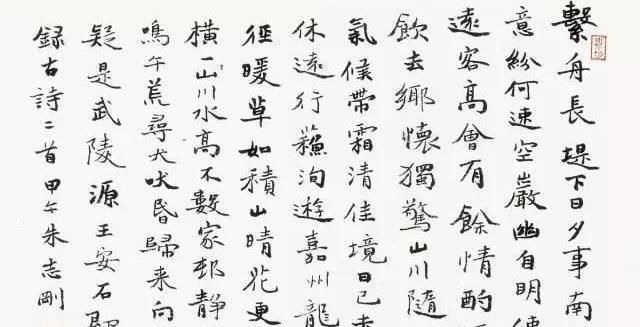 繫舟長堤下日夕事南
意紛何速空巖幽自明使
遠客高會有餘情酌
飲去鄉懷獨驚山川隨
氣候帶霜清佳境日已去
休遠行蘇洵遊嘉州龍
徑暖草如積山晴花更
橫一山川水高不數家邨靜
鳴午荒尋犬吠昏歸来向
疑是武陵源王安石即
録古詩二首甲午朱志剛